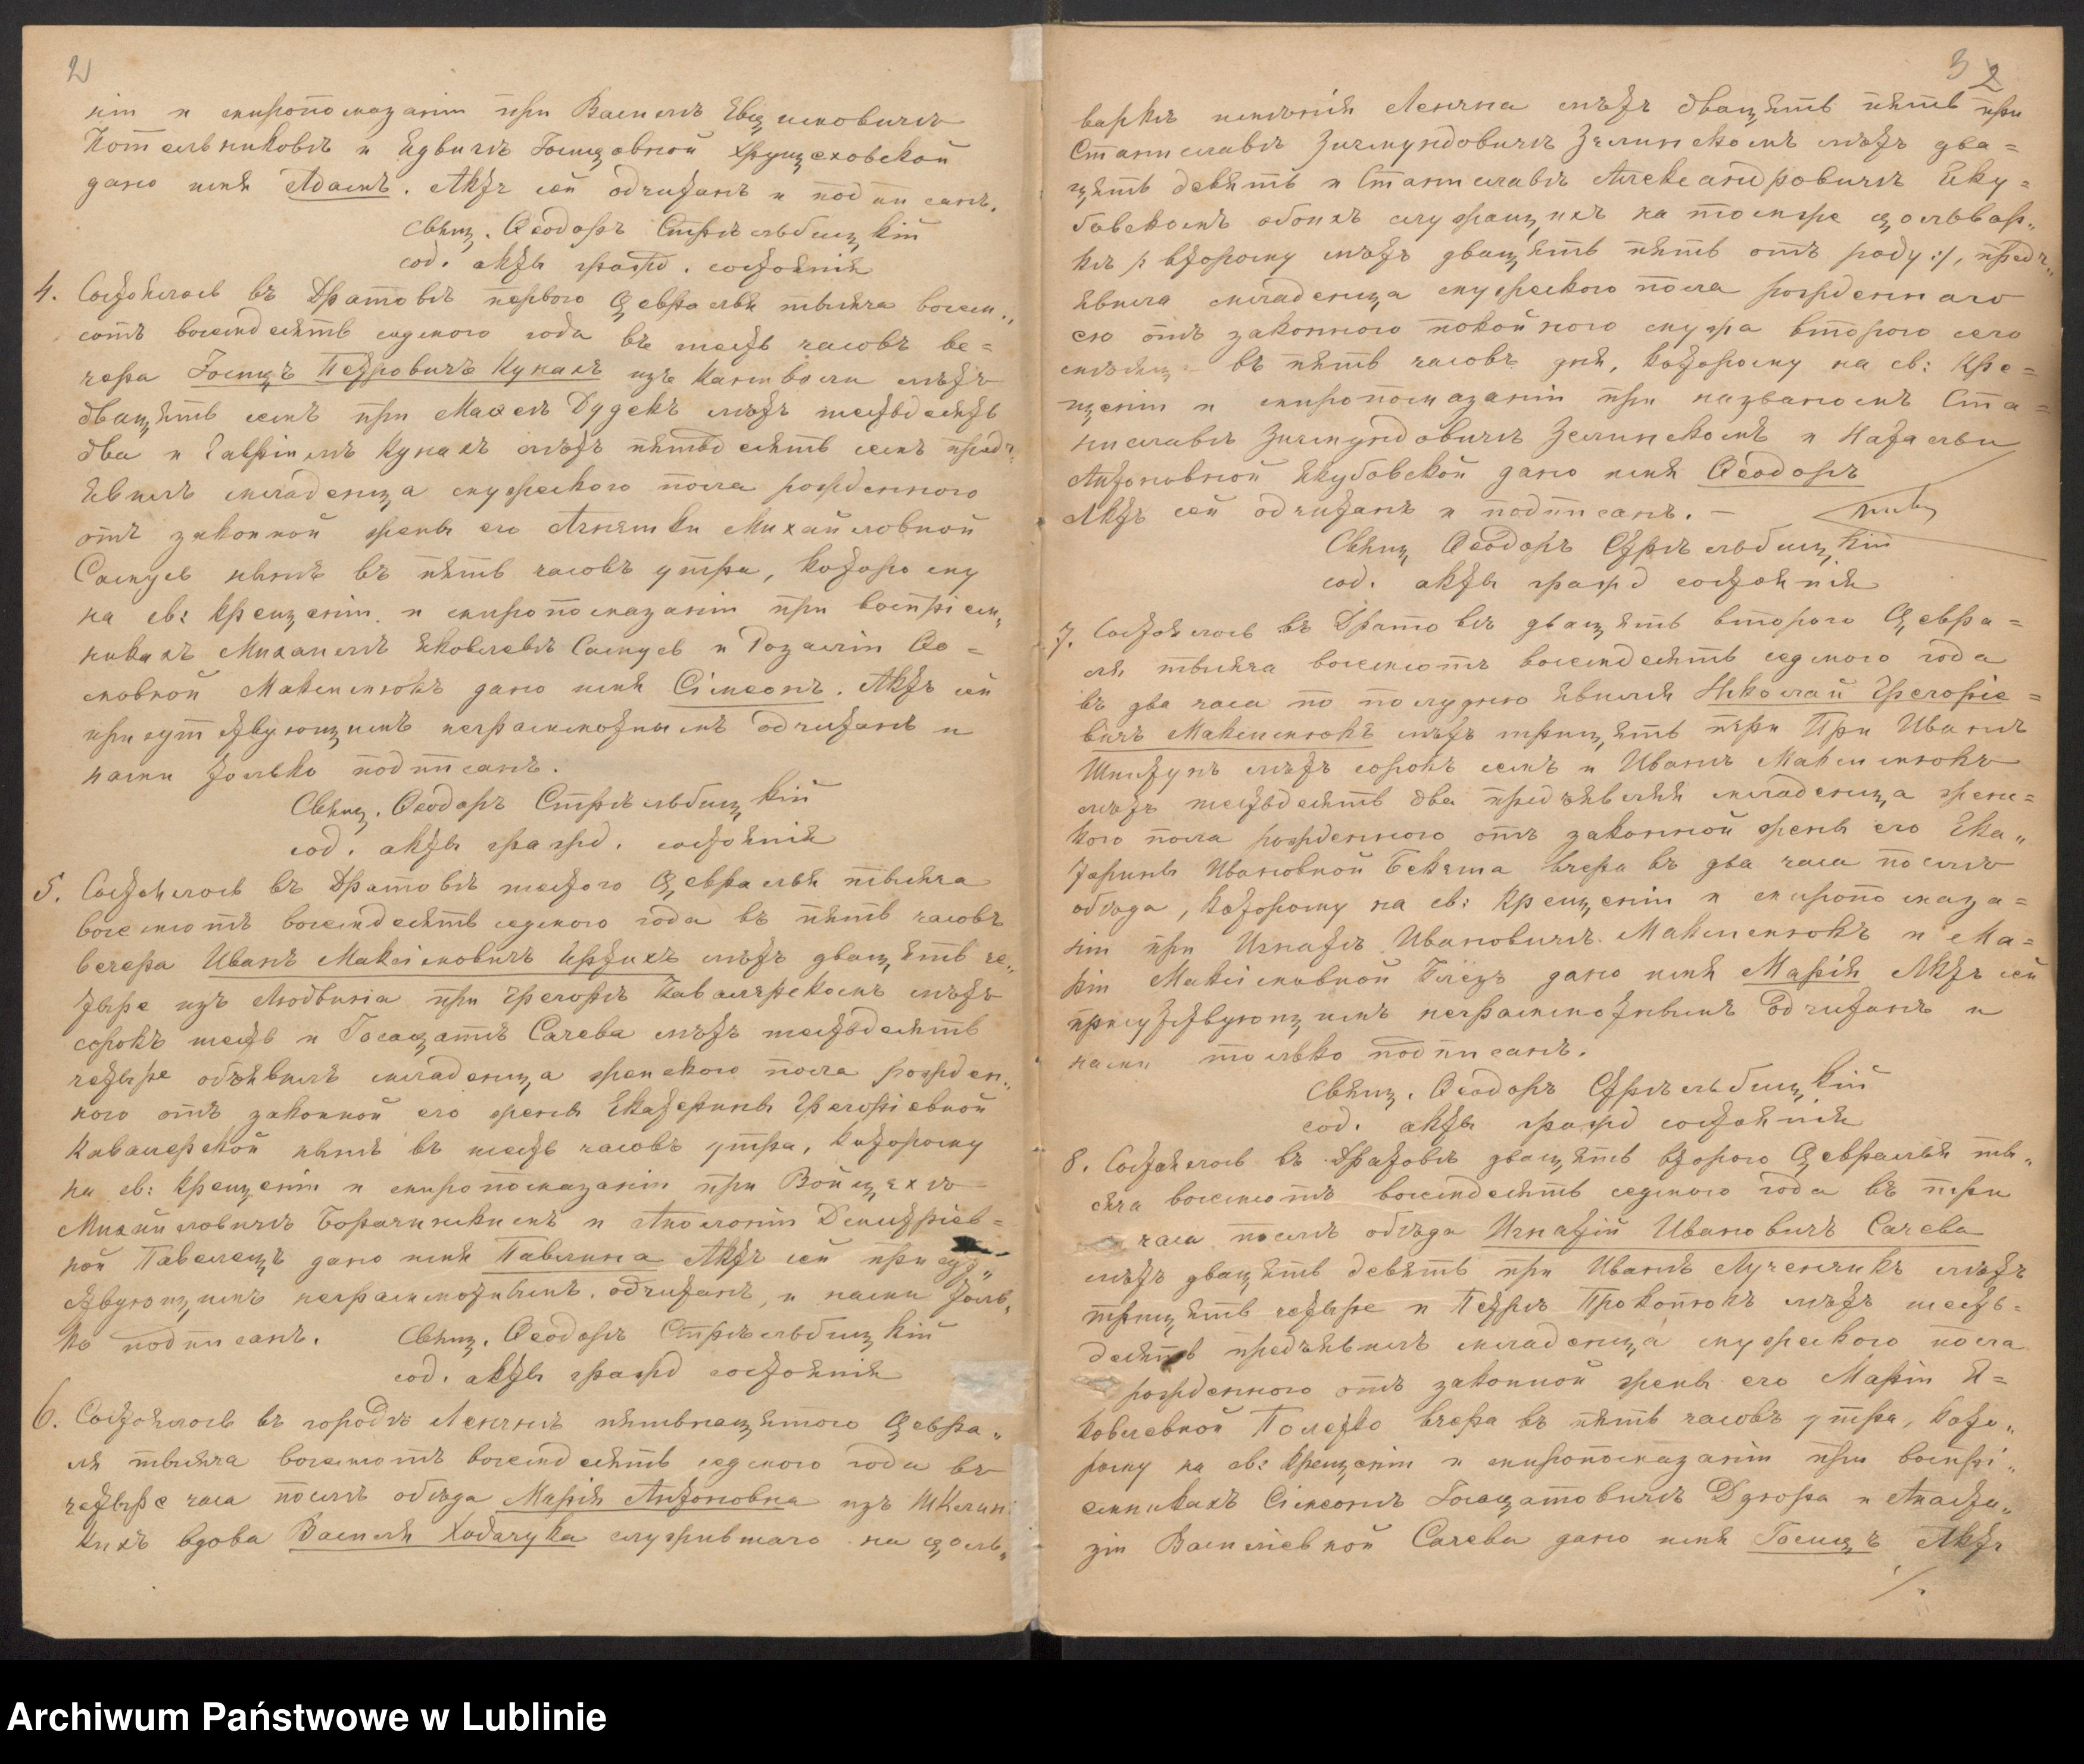 2
ніи и миропомазаніи при Василѣ
Котельниковѣ и Ядвигѣ Іосифовной
дано имя Адамъ. Актъ сей одчитанъ и подписанъ.
Свящ. Ѳеодоръ Стрѣльбицкій
сод. акты гражд. состоянія
4. Состоялось въ Дратовѣ перваго Февраля тысяча восем„
сотъ восемдесятъ седмого года въ шесть часовъ ве=
чера Іосифъ Петровичъ Кунахъ изъ лѣтъ
двацять семъ при Дудекъ лѣтъ шестьдесятъ
два и Гавріилѣ Кунахъ лѣтъ пятьдесятъ семъ предъ„
явилъ младенца мужескаго пола рожденного
отъ законной жены его Агнешки Михайловной
Самусь нынѣ въ пять часовъ утра, которому
на св: крещеніи и миропомазаніи при воспріем„
никахъ Михаилѣ Яковлевѣ Самусь и Розаліи Ѳо=
мовной Максимюкъ дано имя Сімеонъ. Актъ сей
присутствующимъ неграмотнымъ одчитанъ и
нами только подписанъ.
Свящ. Ѳеодоръ Стрѣльбицкій
сод. акты гражд. состоянія
5. Состоялось въ Дратовѣ шестого Февраля тысяча
восемсотъ восемдесятъ седмого года въ пять часовъ
вечера Иванъ Максимовичъ лѣтъ двацять че„
тыре изъ Людвина при Грегорѣ Кавалерскомъ лѣтъ
сорокъ шесть и Іосафатѣ Сачева лѣтъ шестьдесятъ
четыре объявилъ младенца женского пола рожден„
ного отъ законной его жены Екатерины Грегоріевной
Кавалерской нынѣ въ шесть часовъ утра, которому
на св: крещеніи и миропомазаніи при Войцехѣ
Михайловичѣ и Аполоніи Димитріев=
ной Павелецъ дано имя Павлина Актъ сей присут„
ствующимъ неграмотнымъ одчитанъ, и нами толь„
ко подписанъ. Свящ. Ѳеодоръ Стрѣльбицкій
сод. акты гражд состоянія
6. Состоялось въ городѣ Ленчнѣ пятьнацятого Февра„
ля тысяча восемсотъ восемдесятъ седмого года въ
четыре часа послѣ обѣда Марія Антоновна изъ
вдова Василя Ходачука служившаго на фоль„
3 2
варкѣ имѣнія Ленчна лѣтъ двацять пять при
Станиславѣ Зигмундовичѣ Зелинскомъ лѣтъ два=
цять девять и Станиславѣ Александровичѣ Яку=
бовскомъ обоихъ служащихъ на томже фольвар„
кѣ /: второму лѣтъ двацять пять отъ роду :/, предъ„
явила младенца мужеского пола рожденного
ею отъ законного покойного мужа второго сего
въ пять часовъ дня, которому на св: кре=
щеніи и миропомазаніи при названомъ Ста=
ниславѣ Зигмундовичѣ Зелинскомъ и Наталіи
Антоновной Якубовской дано имя Ѳеодоръ
Актъ сей одчитанъ и подписанъ. —
Свящ Ѳеодоръ Стрѣльбицкій
сод. акты гражд состоянія
7. Состоялось въ Дратовѣ двацять второго Февра=
ля тысяча восемсотъ восемдесятъ седмого года
въ два часа по полудню явился Николай Грегоріе=
вичъ Максимюкъ лѣтъ трицять три При Иванѣ
лѣтъ сорокъ семъ и Иванѣ Максимюкъ
лѣтъ шестьдесятъ два предъявляя младенца жен=
кого пола рожденного отъ законной жены его Ека„
терины Ивановной вчера въ два часа послѣ
обѣда, которому на св: крещеніи и миропомаза=
ніи при Игнатѣ Ивановичѣ Максимюкъ и Ма=
ріи Максимовной дано имя Марія Актъ сей
присутствующимъ неграмотнымъ одчитанъ и
нами только подписанъ.
Свящ. Ѳеодоръ Стрѣльбицкій
сод. акты гражд состоянія
8. Состоялось въ Дратовѣ двацять второго Февраля ты„
сяча восемсотъ восемдесятъ седмого года въ три
часа послѣ обѣда Игнатій Ивановичъ Сачева
лѣтъ двацять девять при Иванѣ Лученчикъ лѣтъ
трицять четыре и Петрѣ Прокопюкъ лѣтъ шесть=
десятъ предъявилъ младенца мужеского пола
рожденного отъ законной жены его Маріи Я=
ковлевной Полетко вчера въ пять часовъ утра, кото„
рому на св: крещеніи и миропомазаніи при воспрі„
емникахъ Сімеонѣ Іосафатовичѣ Дудора и Анаста„
зіи Василіевной Сачева дано имя Іосифъ Актъ
/.
Archiwum Państwowe w Lublinie